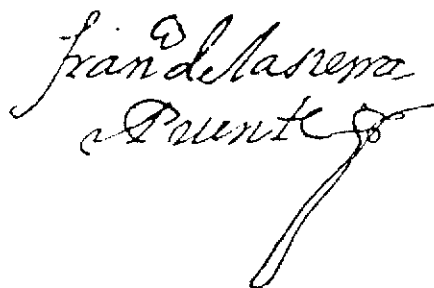 fran^co de la serna
Puente